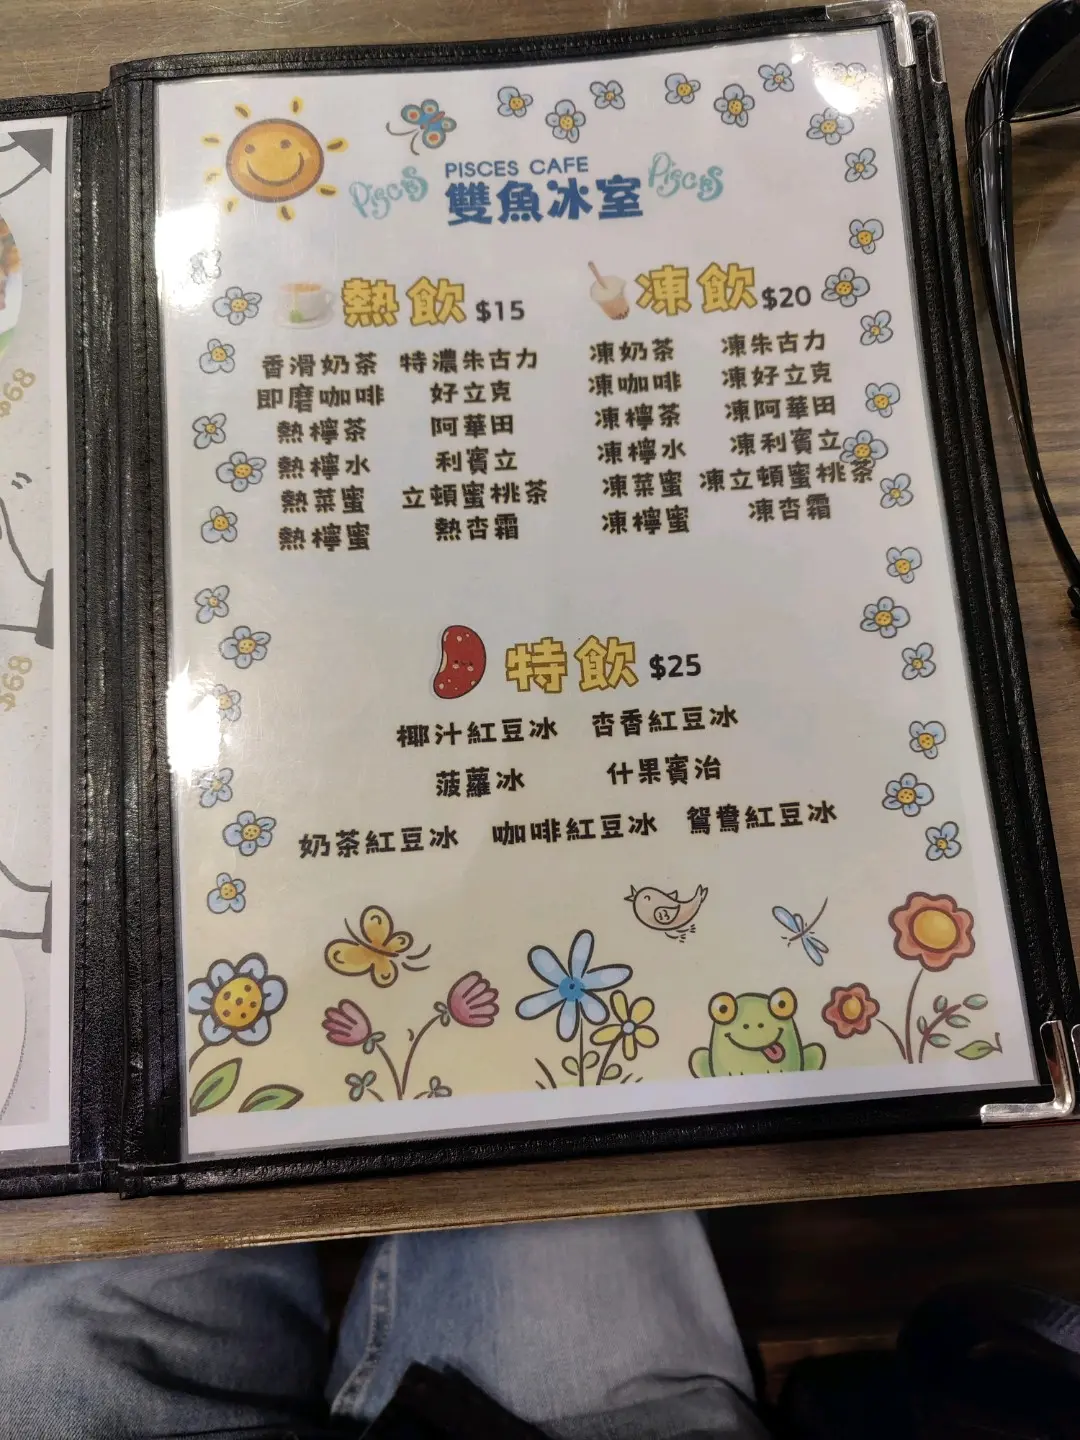 PISCES CAFE
Pisces 雙魚冰室 Pisces
熱飲 $15
香滑奶茶 特濃朱古力
即磨咖啡 好立克
熱檸茶 阿華田
熱檸水 利賓立
熱菜蜜 立頓蜜桃茶
熱檸蜜 熱杏霜
凍飲 $20
凍奶茶 凍朱古力
凍咖啡 凍好立克
凍檸茶 凍阿華田
凍檸水 凍利賓立
凍菜蜜 凍立頓蜜桃茶
凍檸蜜 凍杏霜
特飲 $25
椰汁紅豆冰 杏香紅豆冰
菠蘿冰 什果賓治
奶茶紅豆冰 咖啡紅豆冰 鴛鴦紅豆冰
$68
$68